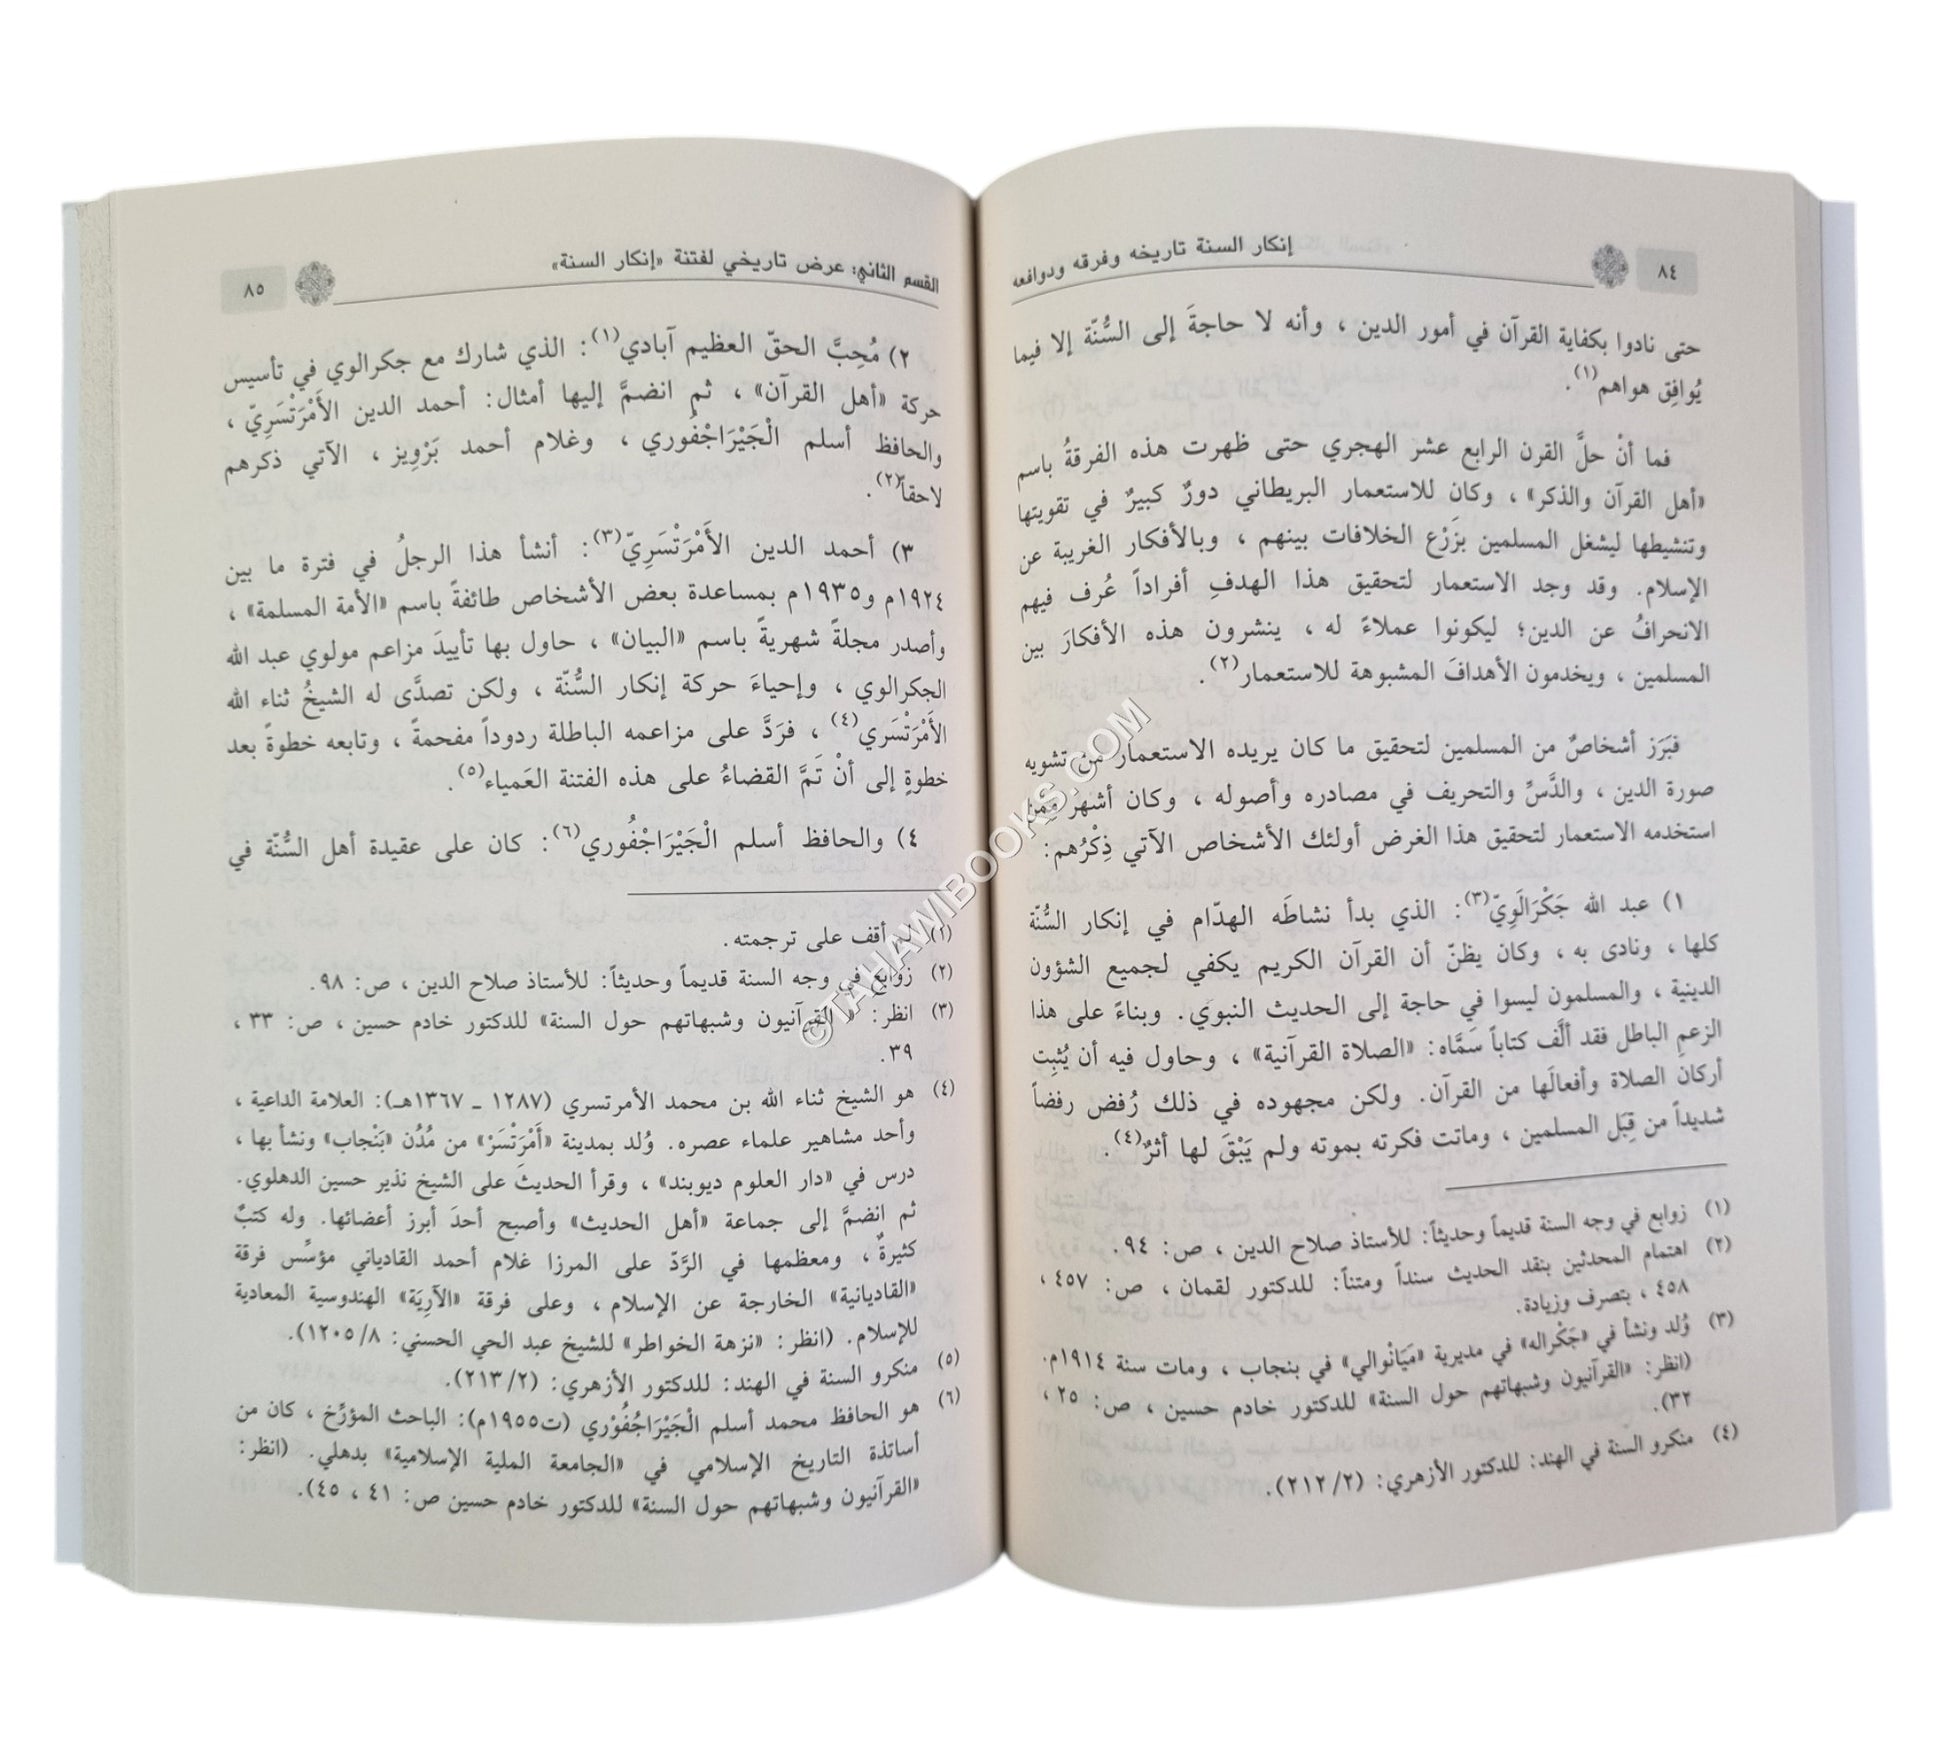 ٨٤
إنكار السنة تاريخه وفرقه ودوافعه
حتى نادوا بكفاية القرآن في أمور الدين ، وأنه لا حاجةَ إلى السُّنّة إلا فيما
يُوافِق هواهم(١).
فما أنْ حلَّ القرن الرابع عشر الهجري حتى ظهرت هذه الفرقةُ باسم
«أهل القرآن والذكر» ، وكان للاستعمار البريطاني دورٌ كبيرٌ في تقويتها
وتنشيطها ليشغل المسلمين بزَرْع الخلافات بينهم ، وبالأفكار الغريبة عن
الإسلام. وقد وجد الاستعمار لتحقيق هذا الهدفِ أفراداً عُرف فيهم
الانحرافُ عن الدين؛ ليكونوا عملاءً له ، ينشرون هذه الأفكارَ بين
المسلمين ، ويخدمون الأهدافَ المشبوهة للاستعمار(٢).
فبَرَز أشخاصٌ من المسلمين لتحقيق ما كان يريده الاستعمار من تشويه
صورة الدين ، والدَّسِّ والتحريف في مصادره وأصوله ، وكان أشهر ممن
استخدمه الاستعمار لتحقيق هذا الغرض أولئك الأشخاص الآتي ذِكْرُهم:
١) عبد الله جَكْرَالَوِيّ(٣): الذي بدأ نشاطَه الهدّام في إنكار السُّنّة
كلها ، ونادى به ، وكان يظنّ أن القرآن الكريم يكفي لجميع الشؤون
الدينية ، والمسلمون ليسوا في حاجة إلى الحديث النبوي. وبناءً على هذا
الزعمِ الباطل فقد ألَّف كتاباً سَمَّاه: «الصلاة القرآنية» ، وحاول فيه أن يُثبِت
أركان الصلاة وأفعالَها من القرآن. ولكن مجهوده في ذلك رُفض رفضاً
شديداً من قِبَل المسلمين ، وماتت فكرته بموته ولم يَبْقَ لها أثرٌ(٤).
(١) زوابع في وجه السنة قديماً وحديثاً: للأستاذ صلاح الدين ، ص: ٩٤.
(٢) اهتمام المحدثين بنقد الحديث سنداً ومتناً: للدكتور لقمان ، ص: ٤٥٧ ،
٤٥٨ ، بتصرف وزيادة.
(٣) وُلد ونشأ في «جَكْراله» في مديرية «مَيَانْوالي» في بنجاب ، ومات سنة ١٩١٤م.
(انظر: «القرآنيون وشبهاتهم حول السنة» للدكتور خادم حسين ، ص: ٢٥ ،
٣٢).
(٤) منكرو السنة في الهند: للدكتور الأزهري: (٢/ ٢١٢).
القسم الثاني: عرض تاريخي لفتنة «إنكار السنة»
٨٥
٢) مُحِبَّ الحقّ العظيم آبادي(١): الذي شارك مع جكرالوي في تأسيس
حركة «أهل القرآن» ، ثم انضمَّ إليها أمثال: أحمد الدين الأَمْرَتْسَرِيّ ،
والحافظ أسلم الْجَيْرَاجْفُوري ، وغلام أحمد بَرْوِيز ، الآتي ذكرهم
لاحقاً(٢).
٣) أحمد الدين الأَمْرَتْسَرِيّ(٣): أنشأ هذا الرجلُ في فترة ما بين
١٩٢٤م و١٩٣٥م بمساعدة بعض الأشخاص طائفةً باسم «الأمة المسلمة» ،
وأصدر مجلةً شهريةً باسم «البيان» ، حاول بها تأييدَ مزاعم مولوي عبد الله
الجكرالوي ، وإحياءَ حركة إنكار السُّنّة ، ولكن تصدَّى له الشيخُ ثناء الله
الأَمْرَتْسَري(٤) ، فرَدَّ على مزاعمه الباطلة ردوداً مفحمةً ، وتابعه خطوةً بعد
خطوةٍ إلى أنْ تَمَّ القضاءُ على هذه الفتنة العَمياء(٥).
٤) والحافظ أسلم الْجَيْرَاجْفُوري(٦): كان على عقيدة أهل السُّنّة في
(١) لم أقف على ترجمته.
(٢) زوابع في وجه السنة قديماً وحديثاً: للأستاذ صلاح الدين ، ص: ٩٨.
(٣) انظر: «القرآنيون وشبهاتهم حول السنة» للدكتور خادم حسين ، ص: ٣٣ ،
٣٩.
(٤) هو الشيخ ثناء الله بن محمد الأمرتسري (١٢٨٧ ـ ١٣٦٧هـ): العلامة الداعية ،
وأحد مشاهير علماء عصره. وُلد بمدينة «أَمْرَتْسَرْ» من مُدُن «بَنْجاب» ونشأ بها ،
درس في «دار العلوم ديوبند» ، وقرأ الحديثَ على الشيخ نذير حسين الدهلوي.
ثم انضمَّ إلى جماعة «أهل الحديث» وأصبح أحدَ أبرز أعضائها. وله كتبٌ
كثيرةٌ ، ومعظمها في الرَّدّ على المرزا غلام أحمد القادياني مؤسِّس فرقة
«القاديانية» الخارجة عن الإسلام ، وعلى فرقة «الآرِيَة» الهندوسية المعادية
للإسلام. (انظر: «نزهة الخواطر» للشيخ عبد الحي الحسني: ٨/ ١٢٠٥).
(٥) منكرو السنة في الهند: للدكتور الأزهري: (٢/ ٢١٣).
(٦) هو الحافظ محمد أسلم الْجَيْرَاجْفُوْري (ت١٩٥٥م): الباحث المؤرِّخ ، كان من
أساتذة التاريخ الإسلامي في «الجامعة الملية الإسلامية» بدهلي. (انظر:
«القرآنيون وشبهاتهم حول السنة» للدكتور خادم حسين ص: ٤١ ، ٤٥).
©TAHAWIBOOKS.COM